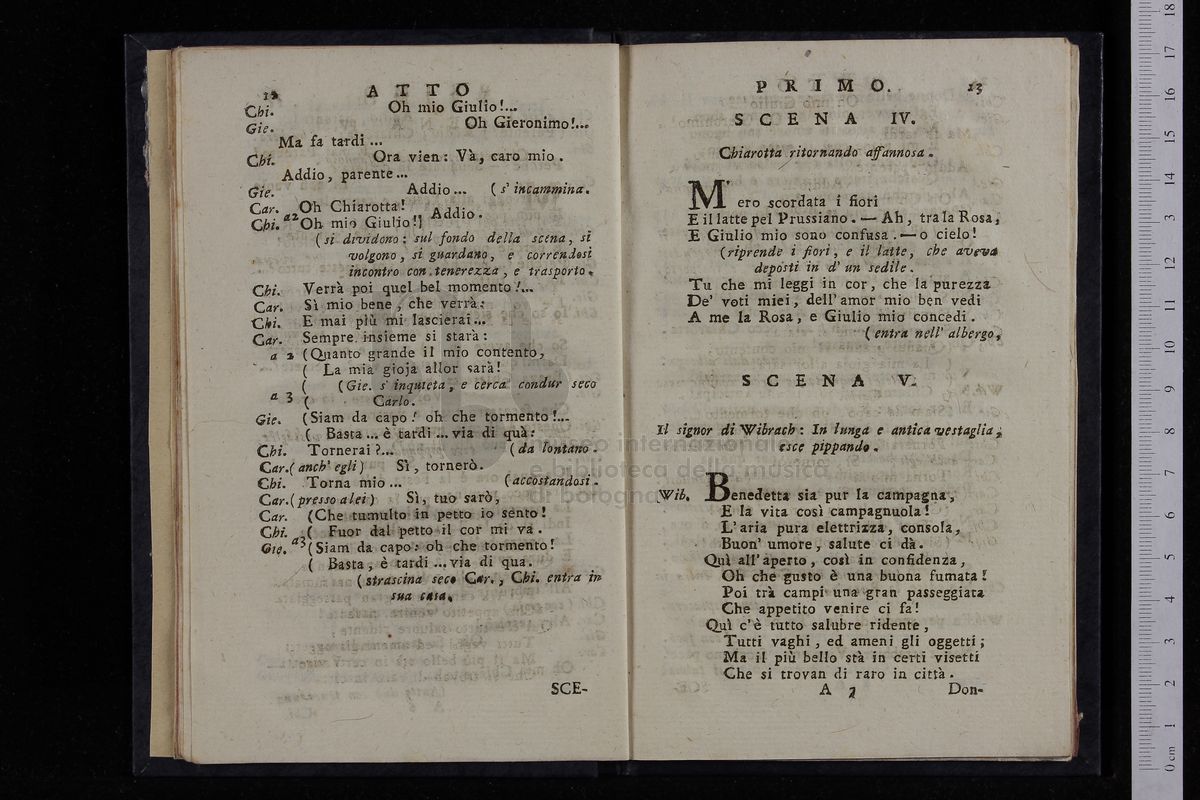 12 ATTO
Chi. Oh mio Giulio!...
Gie. Oh Gieronimo!...
Ma fa tardi ...
Chi. Ora vien: Và, caro mio.
Addio, parente...
Gie. Addio... (s' incammina.
Car. Oh Chiarotta!
Chi. a2 Oh mio Giulio!) Addio.
(si dividono: sul fondo della scena, si
volgono, si guardano, e correndosi
incontro con tenerezza, e trasporto.
Chi. Verrà poi quel bel momento!...
Car. Sì mio bene, che verrà:
Chi. E mai più mi lascierai...
Car. Sempre insieme si starà:
a 2 (Quanto grande il mio contento,
( La mia gioja allor sarà!
( (Gie. s' inquieta, e cerca condur seco
a 3 ( Carlo.
Gie. (Siam da capo! oh che tormento!...
( Basta ... è tardi ... via di quà:
Chi. Tornerai?... (da lontano.
Car. (anch' egli) Sì, tornerò.
Chi. Torna mio ... (accostandosi.
Car. (presso a lei) Sì, tuo sarò,
Car. (Che tumulto in petto io sento!
Chi. ( Fuor dal petto il cor mi va.
Gie. a3 (Siam da capo: oh che tormento!
( Basta, è tardi ... via di qua.
(strascina seco Car., Chi. entra in
sua casa.
SCE-
PRIMO. 13
SCENA IV.
Chiarotta ritornando affannosa.
M' ero scordata i fiori
E il latte pel Prussiano. — Ah, tra la Rosa,
E Giulio mio sono confusa. — o cielo!
(riprende i fiori, e il latte, che aveva
deposti in d' un sedile.
Tu che mi leggi in cor, che la purezza
De' voti miei, dell' amor mio ben vedi
A me la Rosa, e Giulio mio concedi.
(entra nell' albergo,
SCENA V.
Il signor di Wibrach: In lunga e antica vestaglia,
esce pippando.
Wib. Benedetta sia pur la campagna,
E la vita così campagnuola!
L' aria pura elettrizza, consola,
Buon' umore, salute ci dà.
Quì all' aperto, così in confidenza,
Oh che gusto è una buona fumata!
Poi trà campi una gran passeggiata
Che appetito venire ci fa!
Quì c' è tutto salubre ridente,
Tutti vaghi, ed ameni gli oggetti;
Ma il più bello stà in certi visetti
Che si trovan di raro in città.
A 7 Don-
museo internazionale
e biblioteca della musica
di bologna
0 cm 1 2 3 4 5 6 7 8 9 10 11 12 13 14 15 16 17 18